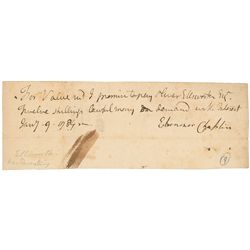 For Value recd I promise to pay Oliver Ellsworth Esqr
Twelve shillings Lawful money on demand with Interest
Jany 9 1784
Ebenezer Chaplin
Ellsworth